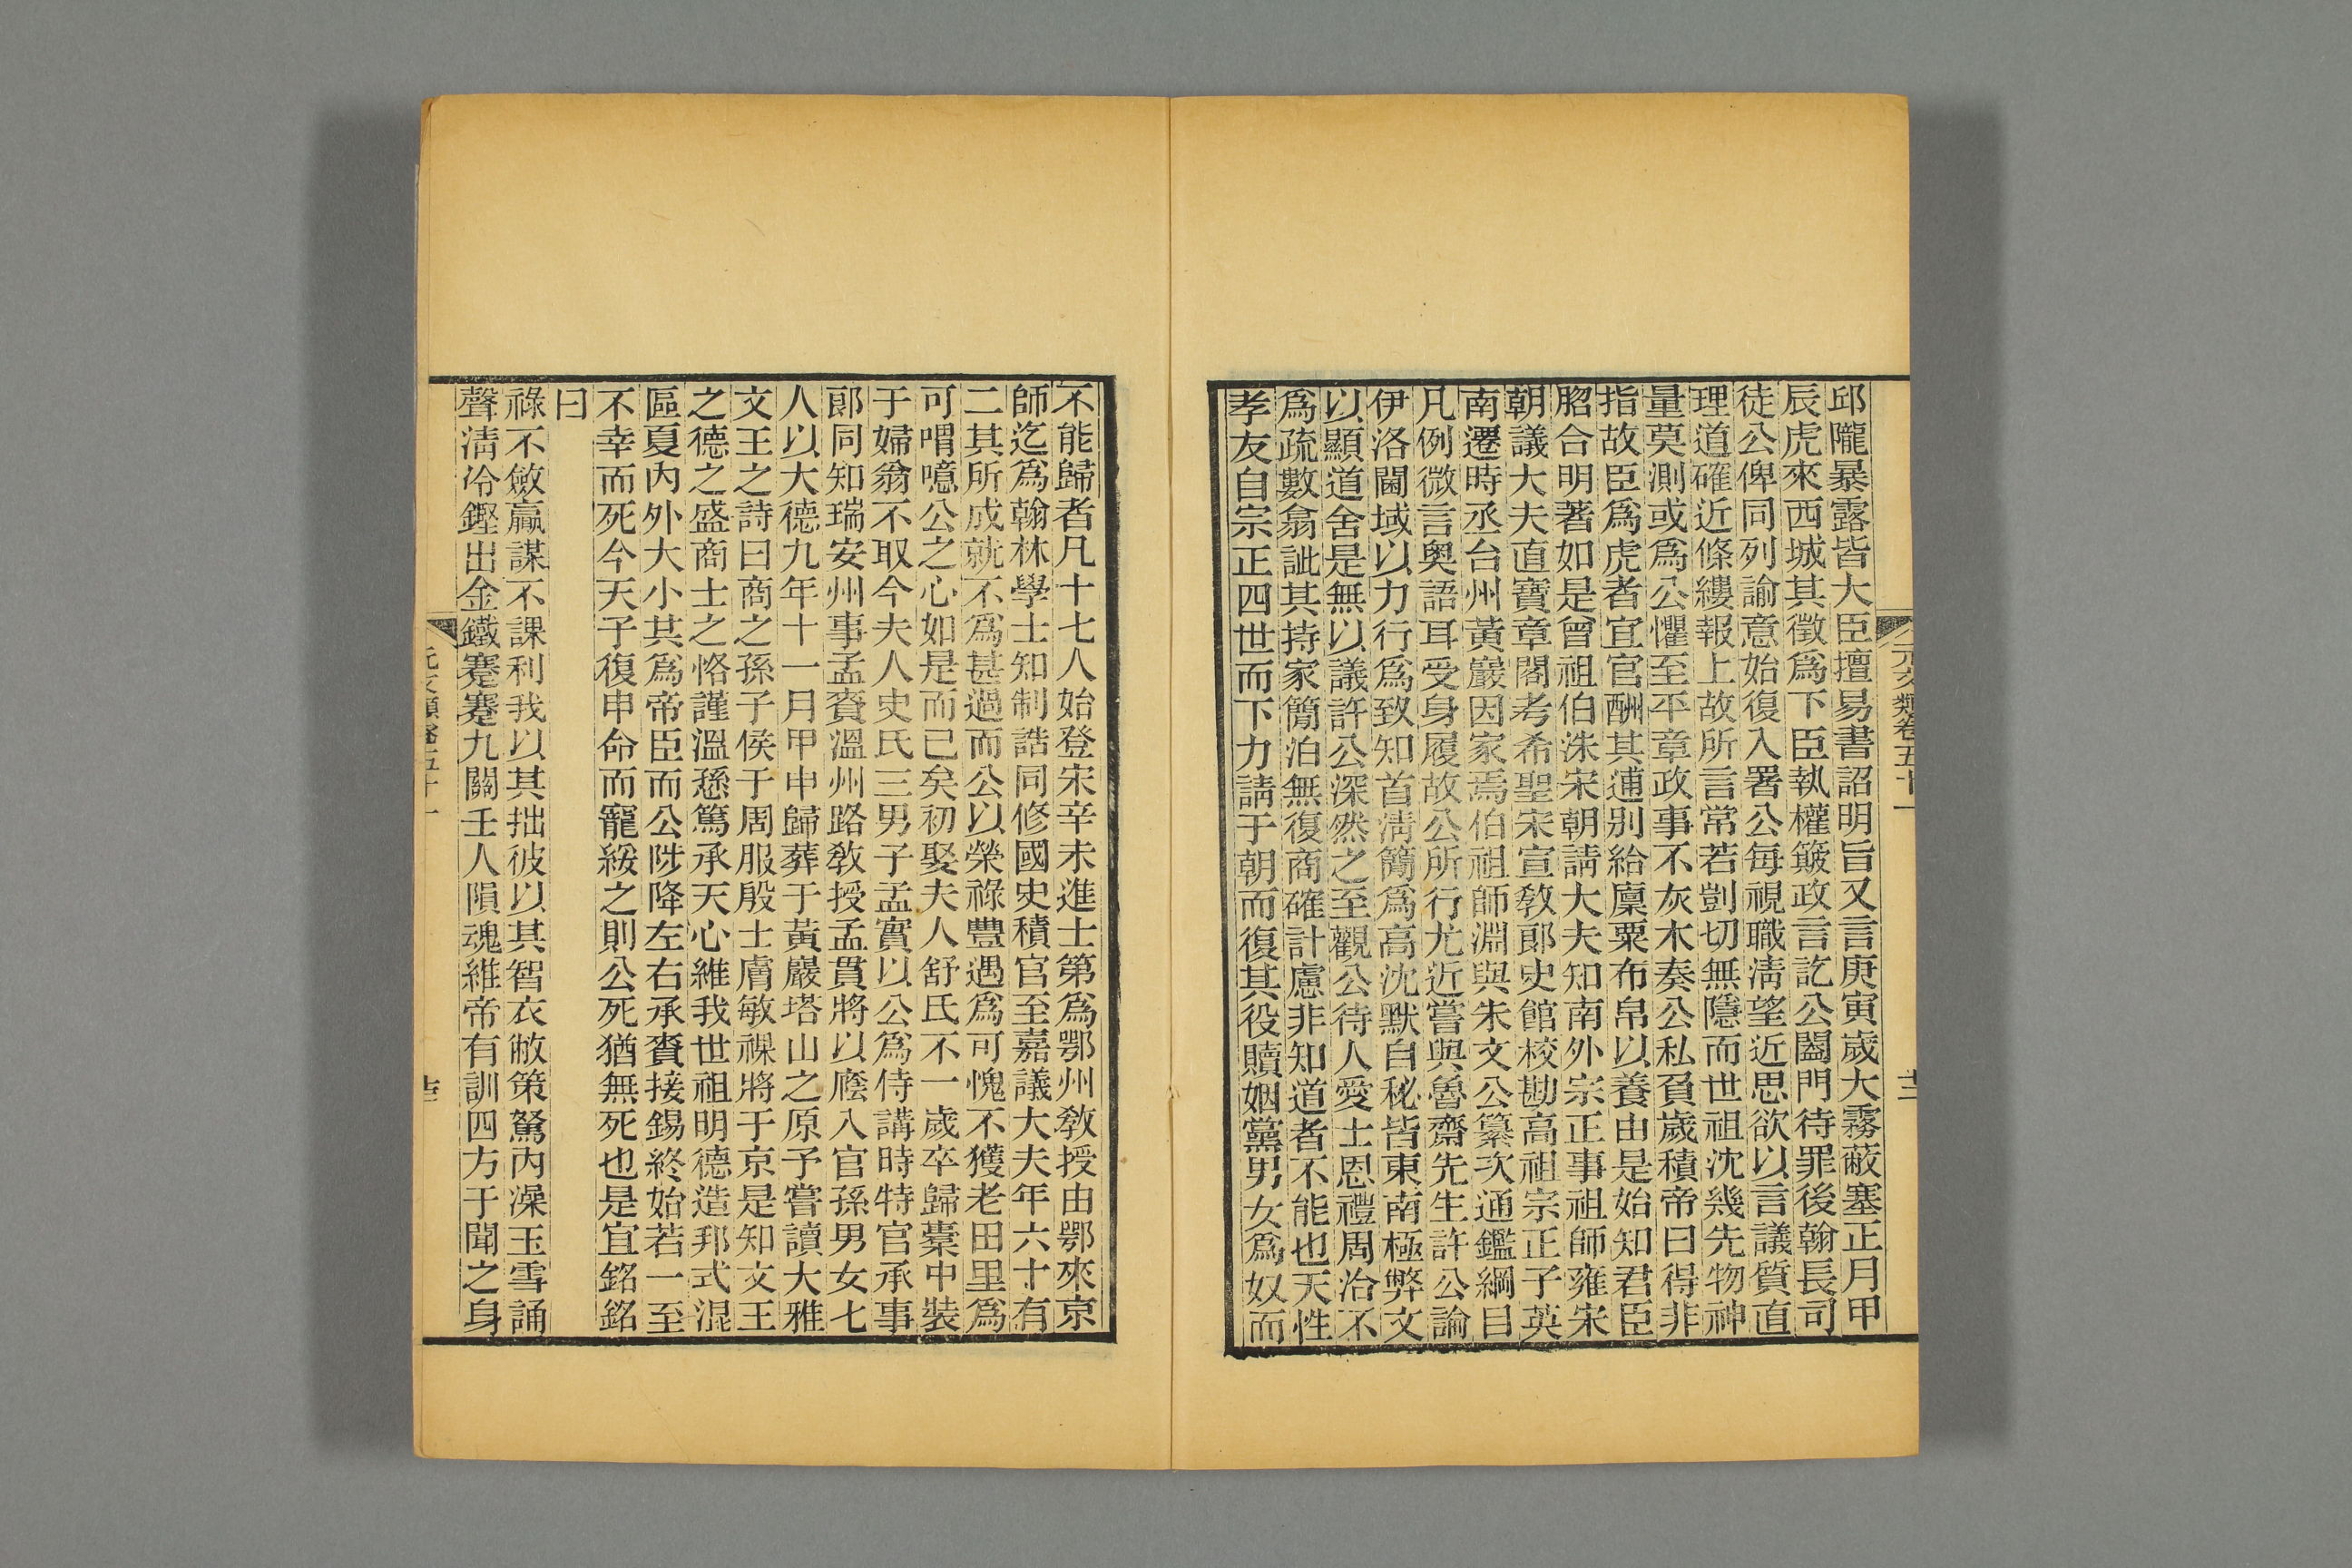 邱隴暴露皆大臣擅易書詔明旨又言庚寅歲大霧蔽塞正月甲
辰虎來西城其徵爲下臣執權簸政言訖公闔門待罪後翰長司
徒公俾同列諭意始復入署公每視職淸望近思欲以言議質直
理道確近條縷報上故所言常若剴切無隱而世祖沈幾先物神
量莫測或爲公懼至平章政事不灰木奏公私負歲積帝曰得非
指故臣爲虎者宜官酬其逋別給廩粟布帛以養由是始知君臣
脗合明著如是曾祖伯洙宋朝請大夫知南外宗正事祖師雍宋
朝議大夫直寶章閣考希聖宋宣敎郞史館校勘高祖宗正子英
南遷時丞台州黃巖因家焉伯祖師淵與朱文公纂次通鑑綱目
凡例微言奧語耳受身履故公所行尤近嘗與魯齋先生許公論
伊洛閫域以力行爲致知首淸簡爲高沈默自秘皆東南極弊文
以顯道舍是無以議許公深然之至觀公待人愛士恩禮周洽不
爲疏數翕訿其持家簡泊無復商確計慮非知道者不能也天性
孝友自宗正四世而下力請于朝而復其役贖姻黨男女爲奴而
元文類卷五十一
十二
不能歸者凡十七人始登宋辛未進士第爲鄂州敎授由鄂來京
師迄爲翰林學士知制誥同修國史積官至嘉議大夫年六十有
二其所成就不爲甚過而公以榮祿豐遇爲可愧不獲老田里爲
可喟噫公之心如是而已矣初娶夫人舒氏不一歲卒歸櫜中裝
于婦翁不取今夫人史氏三男子孟實以公爲侍講時特官承事
郞同知瑞安州事孟賚溫州路敎授孟貫將以廕入官孫男女七
人以大德九年十一月甲申歸葬于黃巖塔山之原予嘗讀大雅
文王之詩曰商之孫子侯于周服殷士膚敏祼將于京是知文王
之德之盛商士之恪謹溫遜篤承天心維我世祖明德造邦式混
區夏內外大小其爲帝臣而公陟降左右承賚接錫終始若一至
不幸而死今天子復申命而寵綏之則公死猶無死也是宜銘銘
曰
祿不斂贏謀不課利我以其拙彼以其智衣敝策駑內澡玉雪誦
聲淸泠鏗出金鐵蹇蹇九關壬人隕魂維帝有訓四方于聞之身
元文類卷五十一
十三